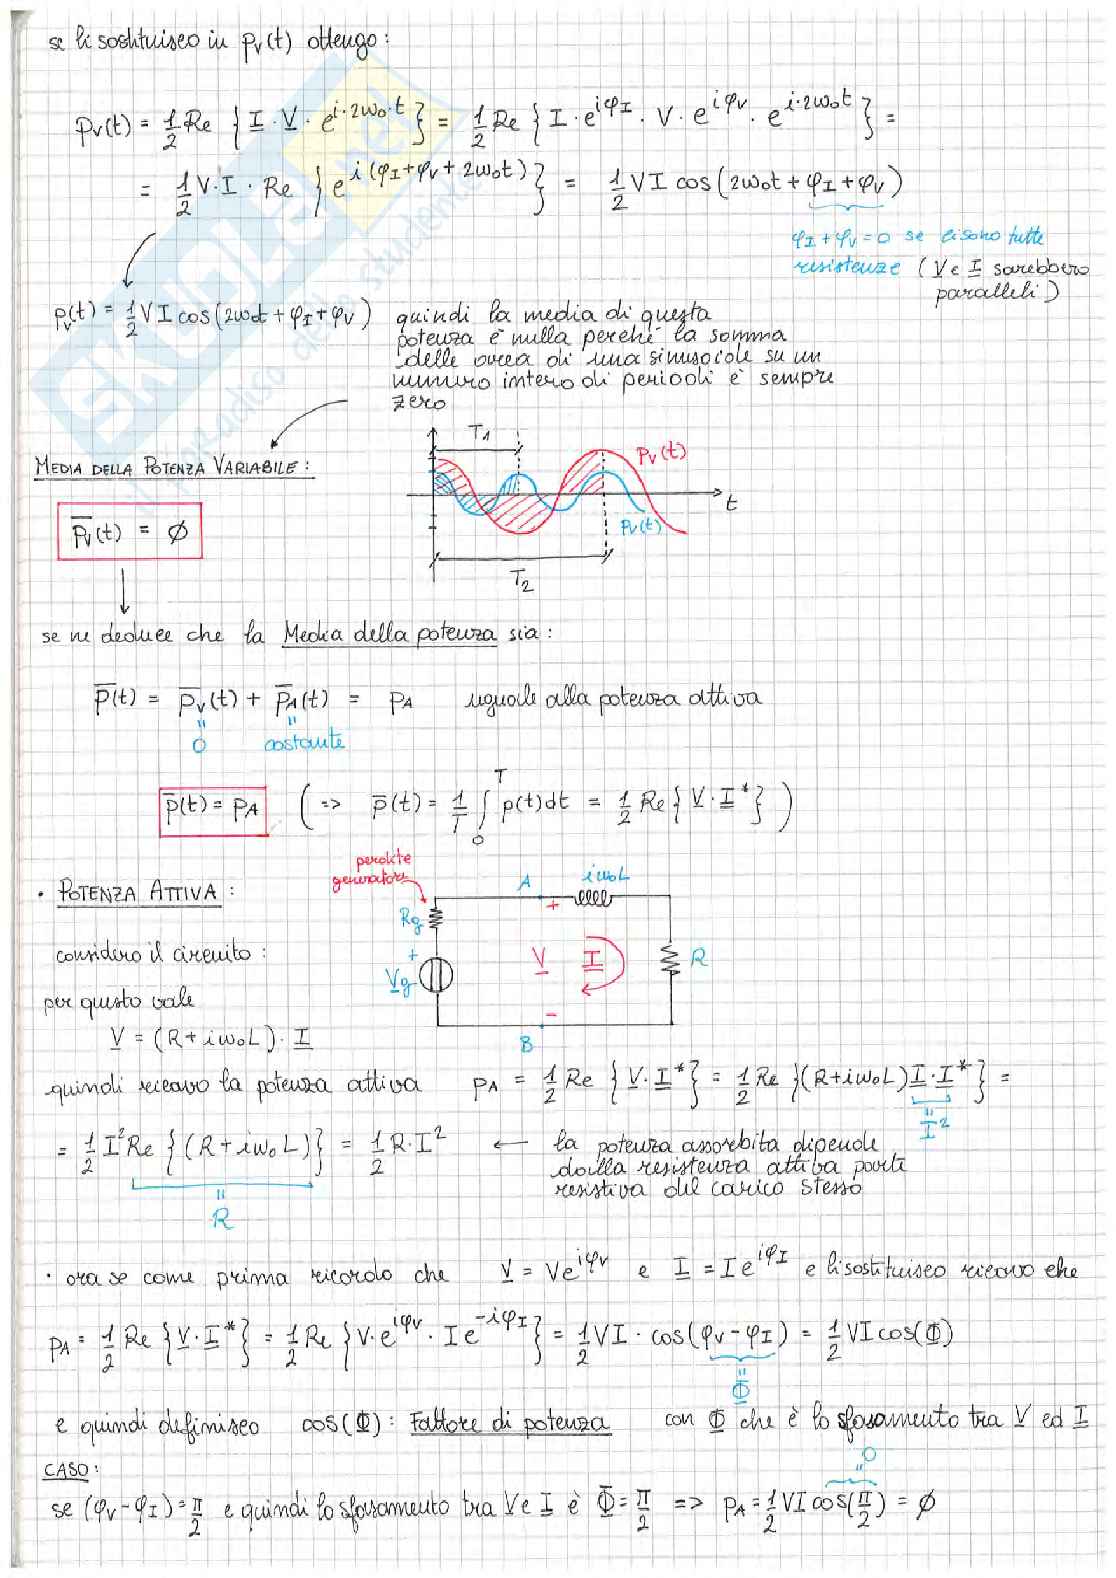 se li sostituisco in pv(t) ottengo:
pv(t) = 1/2 Re { I · V · e^(i·2ω₀·t) } = 1/2 Re { I · e^(iφI) · V · e^(iφV) · e^(i·2ω₀t) } =
= 1/2 V·I · Re { e^(i(φI+φV+2ω₀t)) } = 1/2 VI cos(2ω₀t + φI + φV)
φI + φV = 0 se ci sono tutte
resistenze (V e I sarebbero
paralleli)
pv(t) = 1/2 VI cos(2ω₀t + φI + φV)
quindi la media di questa
potenza è nulla perché la somma
delle area di una sinusoide su un
numero intero di periodi è sempre
zero
MEDIA DELLA POTENZA VARIABILE:
T1
pv(t)
t
pv(t)
T2
p̅v(t) = ø
se ne deduce che la Media della potenza sia:
p̅(t) = p̅v(t) + p̅A(t) = pA uguale alla potenza attiva
" "
0 costante
p̅(t) = pA ( => p̅(t) = 1/T ∫₀ᵀ p(t)dt = 1/2 Re { V · I* } )
· POTENZA ATTIVA:
perdite
generatore
A
iω₀L
Rg
+
considero il circuito:
+
Vg
V
I
R
per questo vale
-
B
V = (R + iω₀L) · I
quindi ricavo la potenza attiva pA = 1/2 Re { V · I* } = 1/2 Re {(R+iω₀L) I · I* } =
"
I²
= 1/2 I² Re {(R + iω₀L)} = 1/2 R·I² ← la potenza assorbita dipende
dalla resistenza attiva parte
resistiva del carico stesso
"
R
· ora se come prima ricordo che V = Ve^(iφV) e I = Ie^(iφI) e li sostituisco ricavo che
pA = 1/2 Re { V · I* } = 1/2 Re { V·e^(iφV) · Ie^(-iφI) } = 1/2 VI · cos(φV-φI) = 1/2 VI cos(Φ)
"
Φ
e quindi definisco cos(Φ): Fattore di potenza con Φ che è lo sfasamento tra V ed I
CASO:
0
"
se (φV-φI) = π/2 e quindi lo sfasamento tra V e I è Φ = π/2 => pA = 1/2 VI cos(π/2) = ø
SKUOLA.net
il paradiso dello studente